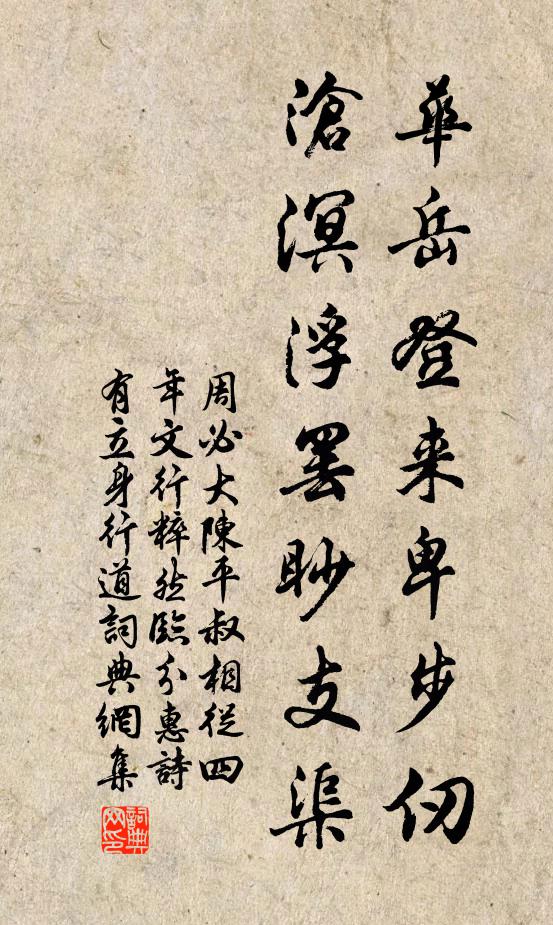 華岳登来卑步仞
滄溟浮罷眇支渠
周必大陳平叔相從四
年文行粹然臨分惠詩
有立身行道詞典網集
詞典网印